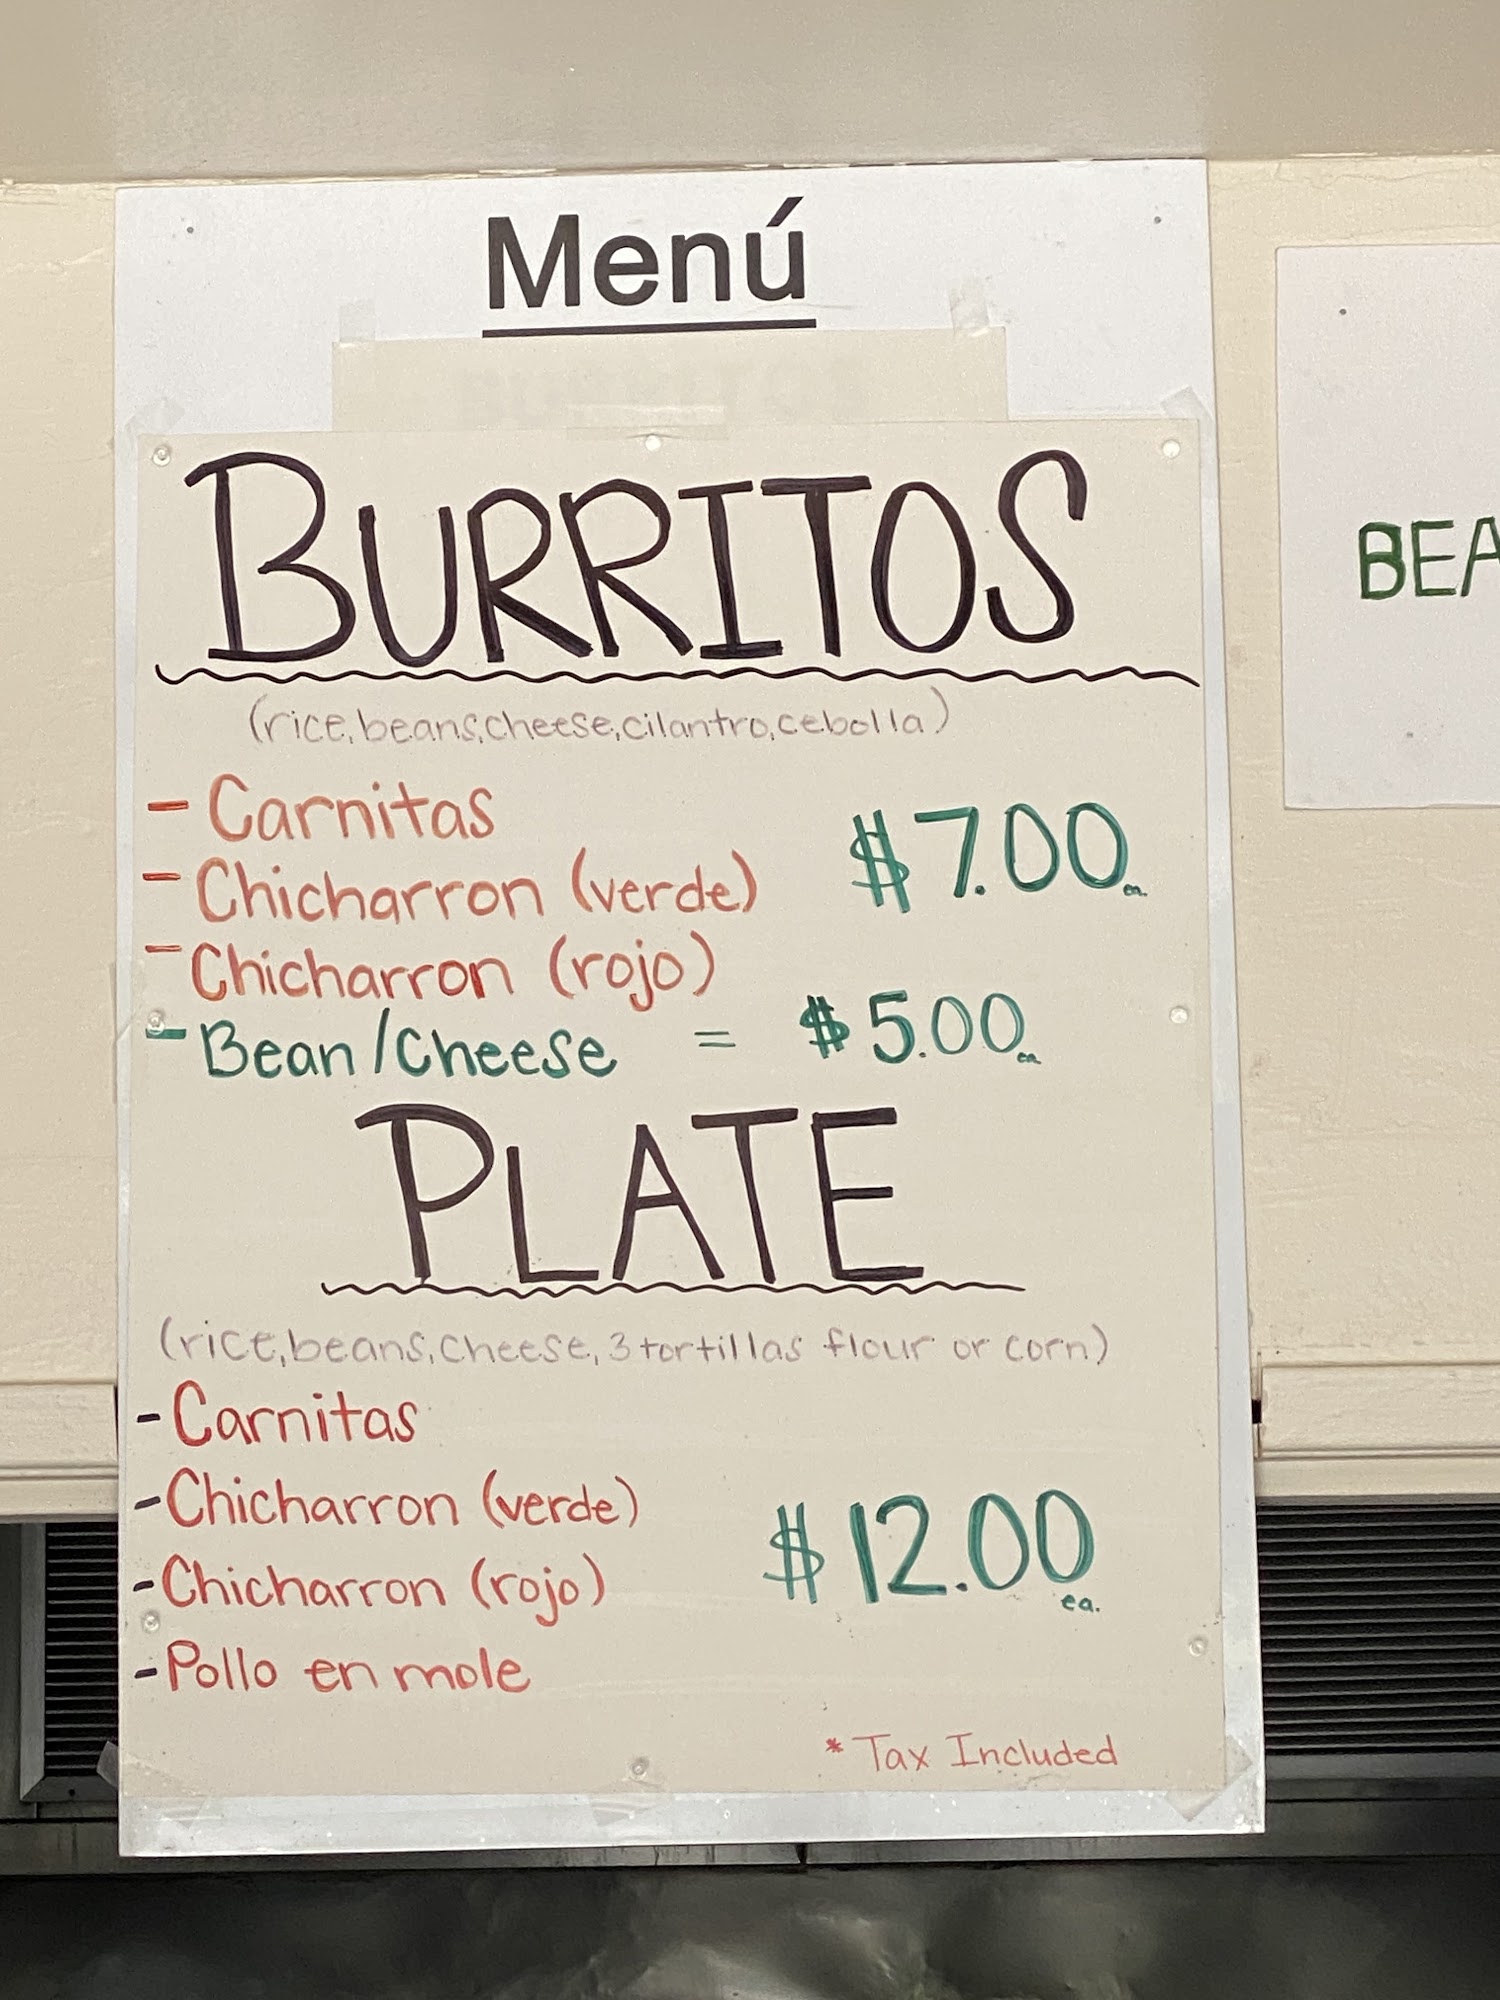 Menú
BURRITOS
(rice,beans,cheese,cilantro,cebolla)
- Carnitas
$7.00 ea.
- Chicharron (verde)
- Chicharron (rojo)
- Bean/Cheese = $5.00 ea.
PLATE
(rice,beans,cheese, 3 tortillas flour or corn)
- Carnitas
- Chicharron (verde)
$12.00 ea.
- Chicharron (rojo)
- Pollo en mole
* Tax Included
BEA